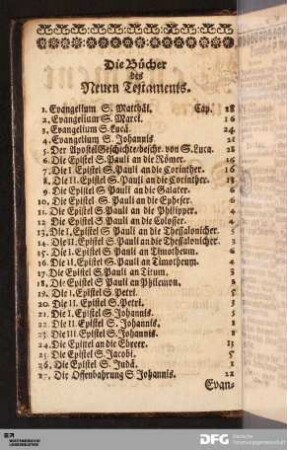 Die Bücher
des
Neuen Testaments.
1. Evangelium S. Matthäi. Cap. 28
2. Evangelium S. Marci. 16
3. Evangelium S. Lucä. 24
4. Evangelium S. Johannis 21
5. Der Apostel Geschichte beschr. von S. Luca. 28
6. Die Epistel S. Pauli an die Römer. 16
7. Die I. Epistel S. Pauli an die Corinther. 16
8. Die II. Epistel S. Pauli an die Corinther. 13
9. Die Epistel S. Pauli an die Galater. 6
10. Die Epistel S. Pauli an die Epheser. 6
11. Die Epistel S. Pauli an die Philipper. 4
12. Die Epistel S. Pauli an die Colosser. 4
13. Die I. Epistel S. Pauli an die Thessalonicher. 5
14. Die II. Epistel S. Pauli an die Thessalonicher. 3
15. Die I. Epistel S. Pauli an Timotheum. 6
16. Die II. Epistel S. Pauli an Timotheum. 4
17. Die Epistel S. Pauli an Titum. 3
18. Die Epistel S. Pauli an Philemon.
19. Die I. Epistel S. Petri. 5
20. Die II. Epistel S. Petri. 3
21. Die I. Epistel S. Johannis. 5
22. Die II. Epistel S. Johannis. 1
23. Die III. Epistel S. Johannis.
24. Die Epistel an die Ebreer. 13
25. Die Epistel S. Jacobi. 5
26. Die Epistel S. Judä. 1
27. Die Offenbahrung S. Johannis. 22
Evan-
DFG